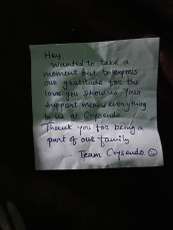 Hey
wanted to take a
moment out to express
our gratitude for the
love you show us. Your
support means everything
to us at Crysendo.
Thank you for being a
part of our family
Team Crysendo ☺